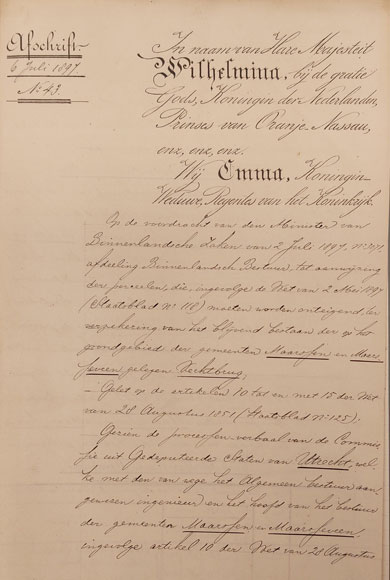 Afschrift
6 Juli 1897.
No. 43.
In naam van Hare Majesteit
Wilhelmina, bij de gratie
Gods, Koningin der Nederlanden,
Prinses van Oranje-Nassau,
enz, enz, enz.
Wij Emma, Koningin-
Weduwe, Regentes van het Koninkrijk.
Op de voordracht van den Minister van
Binnenlandsche Zaken van 2 Juli 1897, no.
afdeeling Binnenlandsch Bestuur, tot aanwijzing
der perceelen, die ingevolge de Wet van 2 Mei 1897
(Staatsblad no. 118) moeten worden onteigend, ter
verzekering van het blijvend bestaan der op het
grondgebied der gemeenten Maarssen en Maars-
seveen gelegen
Gelet op de artikelen 10 tot en met 15 der Wet
van 28 Augustus 1851 (Staatsblad no. 125).
Gezien de processen-verbaal van de Commis-
sie uit Gedeputeerde Staten van Utrecht, wel-
ke met den van wege het Algemeen bestuur aan-
gewezen ingenieur en het hoofd van het bestuur
der gemeenten Maarssen en Maarsseveen,
ingevolge artikel 10 der Wet van 28 Augustus